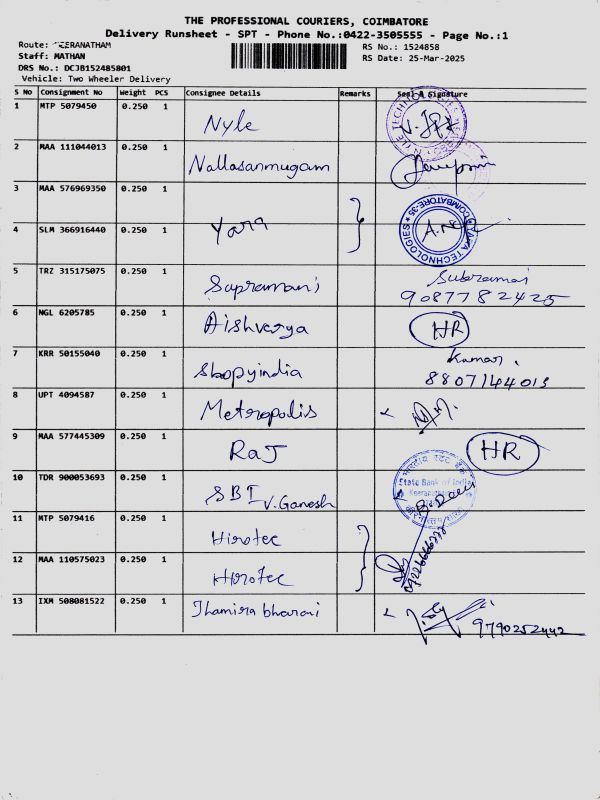 THE PROFESSIONAL COURIERS, COIMBATORE
Delivery Runsheet - SPT - Phone No.:0422-3505555 - Page No.:1
Route: KEERANATHAM
RS No.: 1524858
Staff: MATHAN
RS Date: 25-Mar-2025
DRS No.: DCJB152485801
Vehicle: Two Wheeler Delivery
S No Consignment No Weight PCS Consignee Details Remarks Seal & Signature
1 MTP 5079450 0.250 1 Nyle
2 MAA 111044013 0.250 1 Nallasanmugam
3 MAA 576969350 0.250 1
4 SLM 366916440 0.250 1 Yara
COIMBATORE-35 TECHNOLOGIES
5 TRZ 315175075 0.250 1 Supramani Subramai
9087782425
6 NGL 6205785 0.250 1 Aishverya HR
7 KRR 50155040 0.250 1 Shopyindia Kumar.
8807144013
8 UPT 4094587 0.250 1 Metropolis
9 MAA 577445309 0.250 1 RaJ HR
10 TDR 900053693 0.250 1 SBI V. Ganesh
भारतीय स्टेट बैंक
State Bank of India
11 MTP 5079416 0.250 1 Hirotec
12 MAA 110575023 0.250 1 Hirotec
13 IXM 508081522 0.250 1 Thamira bharani
9790252442